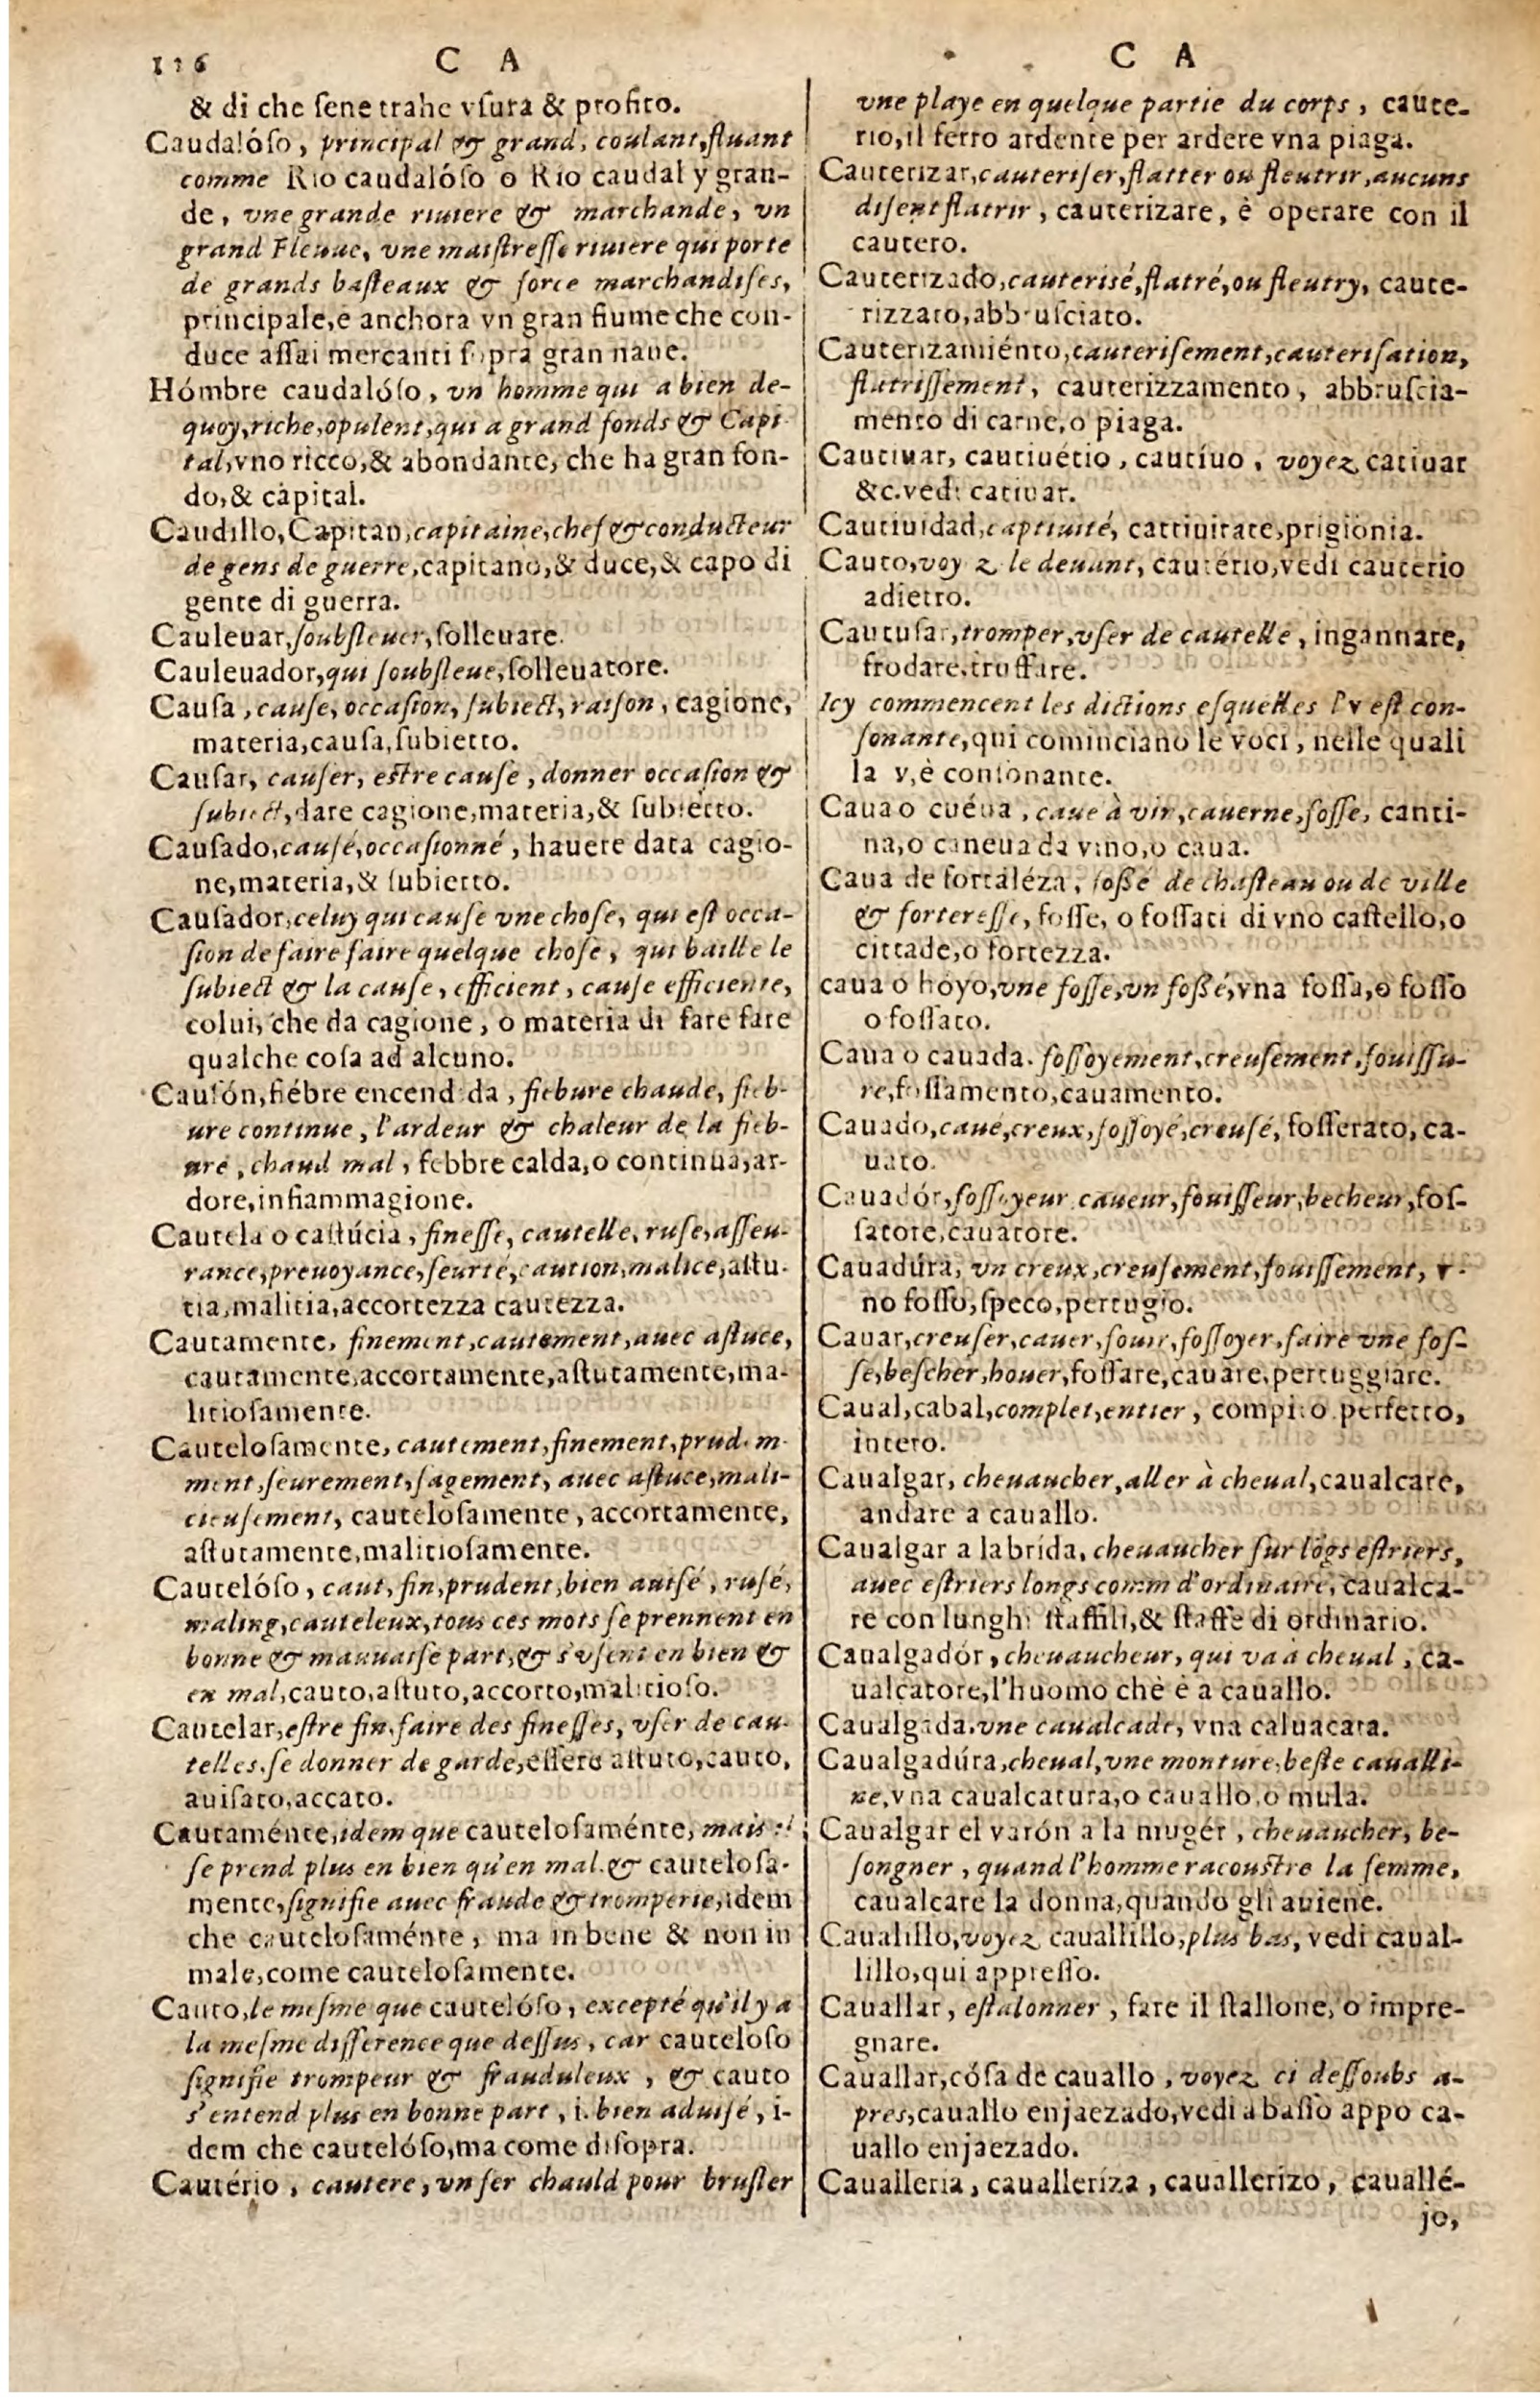 116 C A
& di che sene trahe vsura & profito.
Caudalóso, principal & grand, coulant, fluant
comme Rio caudalóso o Rio caudal y gran-
de, vne grande riuiere & marchande, vn
grand Fleuue, vne maistresse riuiere qui porte
de grands basteaux & force marchandises,
principale, e anchora vn gran fiume che con-
duce assai mercanti sopra gran naue.
Hómbre caudalóso, vn homme qui a bien de-
quoy, riche, opulent, qui a grand fonds & Capi
tal, vno ricco, & abondante, che ha gran fon-
do, & capital.
Caudillo, Capitan, capitaine, chef & conducteur
de gens de guerre, capitano, & duce, & capo di
gente di guerra.
Cauleuar, soubsleuer, solleuare.
Cauleuador, qui soubsleue, solleuatore.
Causa, cause, occasion, subiect, raison, cagione,
materia, causa, subietto.
Causar, causer, estre cause, donner occasion &
subiect, dare cagione, materia, & subietto.
Causado, causé, occasionné, hauere data cagio-
ne, materia, & subietto.
Causador, celuy qui cause vne chose, qui est occa-
sion de faire faire quelque chose, qui baille le
subiect & la cause, efficient, cause efficiente,
colui, che da cagione, o materia di fare fare
qualche cosa ad alcuno.
Causón, fiébre encendida, fiebure chaude, fieb-
ure continue, l'ardeur & chaleur de la fieb-
ure, chaud mal, febbre calda, o continua, ar-
dore, infiammagione.
Cautela o castúcia, finesse, cautelle, ruse, asseu-
rance, preuoyance, seurte, caution, malice, astu-
tia, malitia, accortezza cautezza.
Cautamente, finement, cautement, auec astuce,
cautamente, accortamente, astutamente, ma-
litiosamente.
Cautelosamente, cautement, finement, prudem-
ment, seurement, sagement, auec astuce, mali-
cieusement, cautelosamente, accortamente,
astutamente, malitiosamente.
Cautelóso, caut, fin, prudent, bien auisé, rusé,
maling, cauteleux, tous ces mots se prennent en
bonne & mauuaise part, & s'vsent en bien &
en mal, cauto, astuto, accorto, malitioso.
Cautelar, estre fin, faire des finesses, vser de cau-
telles, se donner de garde, essere astuto, cauto,
auisato, accato.
Cautaménte, idem que cautelosaménte, mais il
se prend plus en bien qu'en mal. & cautelosa-
mente, signifie auec fraude & tromperie, idem
che cautelosaménte, ma in bene & non in
male, come cautelosamente.
Cauto, le mesme que cautelóso, excepté qu'il y a
la mesme difference que dessus, car cauteloso
signifie trompeur & frauduleux, & cauto
s'entend plus en bonne part, i. bien aduisé, i-
dem che cautelóso, ma come disopra.
Cautério, cautere, vn fer chauld pour brusler
C A
vne playe en quelque partie du corps, caute-
rio, il ferro ardente per ardere vna piaga.
Cauterizar, cauteriser, flatter ou fleutrir, aucuns
disent flatrir, cauterizare, è operare con il
cautero.
Cauterizado, cauterisé, flatré, ou fleutry, caute-
rizzato, abbrusciato.
Cauterizamiénto, cauterisement, cauterisation,
flatrissement, cauterizzamento, abbruscia-
mento di carne, o piaga.
Cautiuar, cautiuério, cautíuo, voyez catiuar
&c. vedi catiuar.
Cautiuidad, captiuité, cattiuitate, prigionia.
Cauto, voyez le deuant, cautério, vedi cauterio
adietro.
Cautusar, tromper, vser de cautelle, ingannare,
frodare, truffare.
Icy commencent les dictions esquelles l'v est con-
sonante, qui cominciano le voci, nelle quali
la v, è consonante.
Caua o cuéua, caue à vin, cauerne, fosse, canti-
na, o caneua da vino, o caua.
Caua de fortaléza, fossé de chasteau ou de ville
& forteresse, fosse, o fossati di vno castello, o
cittade, o fortezza.
caua o hoyo, vne fosse, vn fossé, vna fossa, o fosso
o fossato.
Caua o cauada. fossoyement, creusement, fouissu-
re, fossamento, cauamento.
Cauado, caué, creux, fossoyé, creusé, fosserato, ca-
uato.
Cauadór, fossoyeur caueur, fouisseur, becheur, fos-
satore, cauatore.
Cauadúra, vn creux, creusement, fouissement, v-
no fosso, speco, pertugio.
Cauar, creuser, cauer, fouir, fossoyer, faire vne fos-
se, bescher, houer, fossare, cauare, pertuggiare.
Caual, cabal, complet, entier, compito perfetto,
intero.
Caualgar, cheuaucher, aller à cheual, caualcare,
andare a cauallo.
Caualgar a la brida, cheuaucher sur lõgs estriers,
auec estriers longs comm d'ordinaire, caualca-
re con lunghi staffili, & staffe di ordinario.
Caualgadór, cheuaucheur, qui va à cheual, ca-
ualcatore, l'huomo chè è a cauallo.
Caualgada, vne caualcade, vna caluacata.
Caualgadúra, cheual, vne monture, beste caualli-
ne, vna caualcatura, o cauallo, o mula.
Caualgar el varón a la mugér, cheuaucher, be-
songner, quand l'homme racoustre la femme,
caualcare la donna, quando gli auiene.
Caualillo, voyez cauallillo, plus bas, vedi caual-
lillo, qui appresso.
Cauallar, estalonner, fare il stallone, o impre-
gnare.
Cauallar, cósa de cauallo, voyez ci dessoubs a-
pres, cauallo enjaezado, vedi a basso appo ca-
uallo enjaezado.
Caualleria, cauallería, cauallerizo, cauallé-
jo,